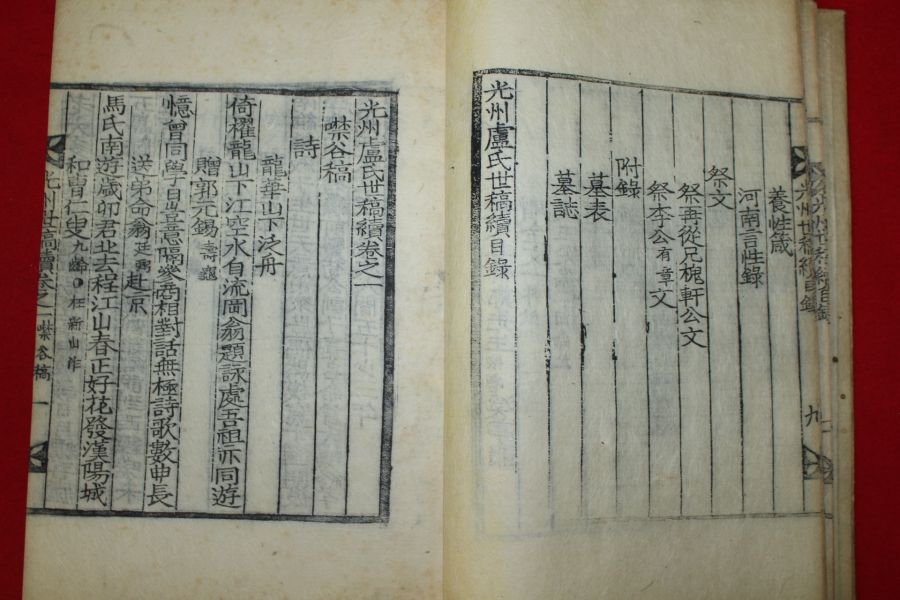 養性箴
河南言性錄
祭文
祭再從兄槐軒公文
祭李公有章文
附錄
墓表
墓誌
光州盧氏世稿續目錄
九
光州盧氏世稿續卷之一
噤谷稿
詩
龍華山下泛舟
倚櫂龍山下江空水自流岡翁題詠處吾祖亦同遊
贈郭元錫壽觀
憶曾同學日豈意隔參商相對話無極詩歌數曲長
送弟命翁廷赴京
馬氏南遊歲卯君北去程江山春正好花發漢陽城
和曺仁叟九齡○在新山作
光州世稿續卷之一 噤谷稿 一